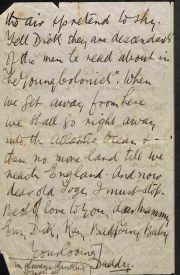 the air or pretend to shy.
Tell Dick they are descendants
of the men he read about in
the "Young Colonists". When
we get away from here
we shall go right away
into the Atlantic Ocean &
then no more land till we
reach England. And now
dear old I must stop.
Best of love to you, dear Mummy,
Dick, Baby
Your loving
Daddy.
always thinking